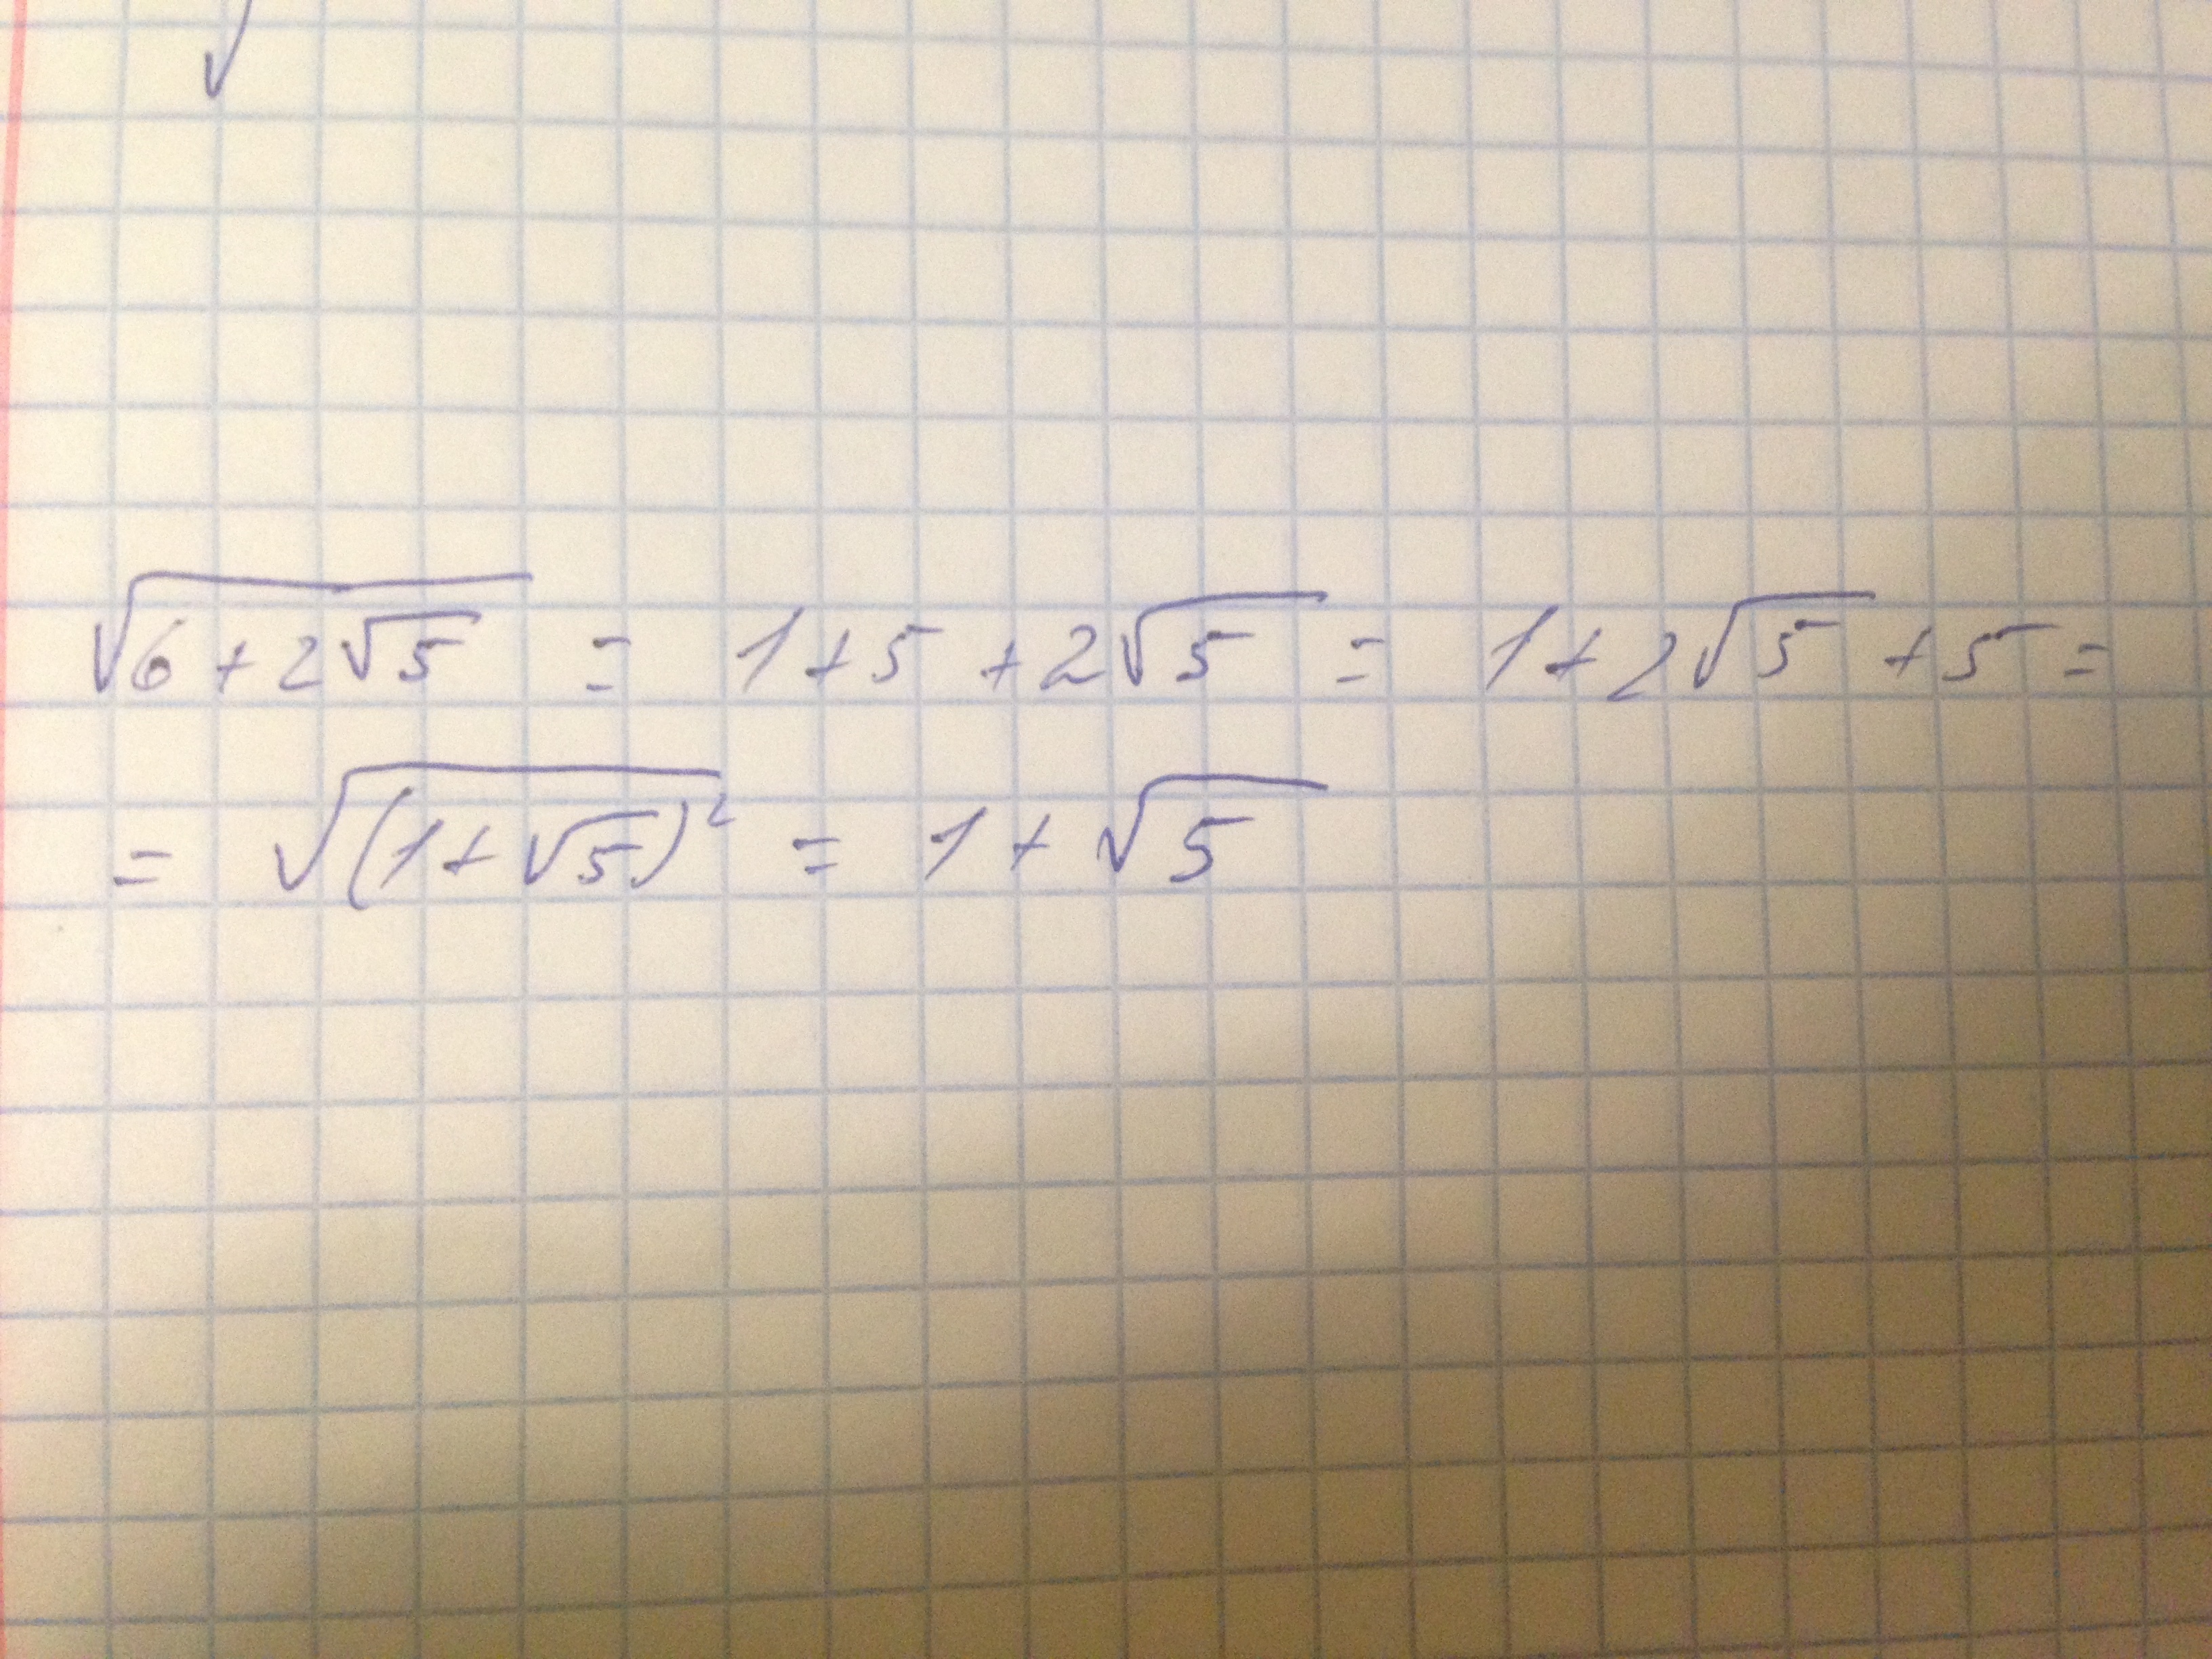 √(6+2√5) = 1+5+2√5 = 1+2√5+5=
= √((1+√5)²) = 1+√5